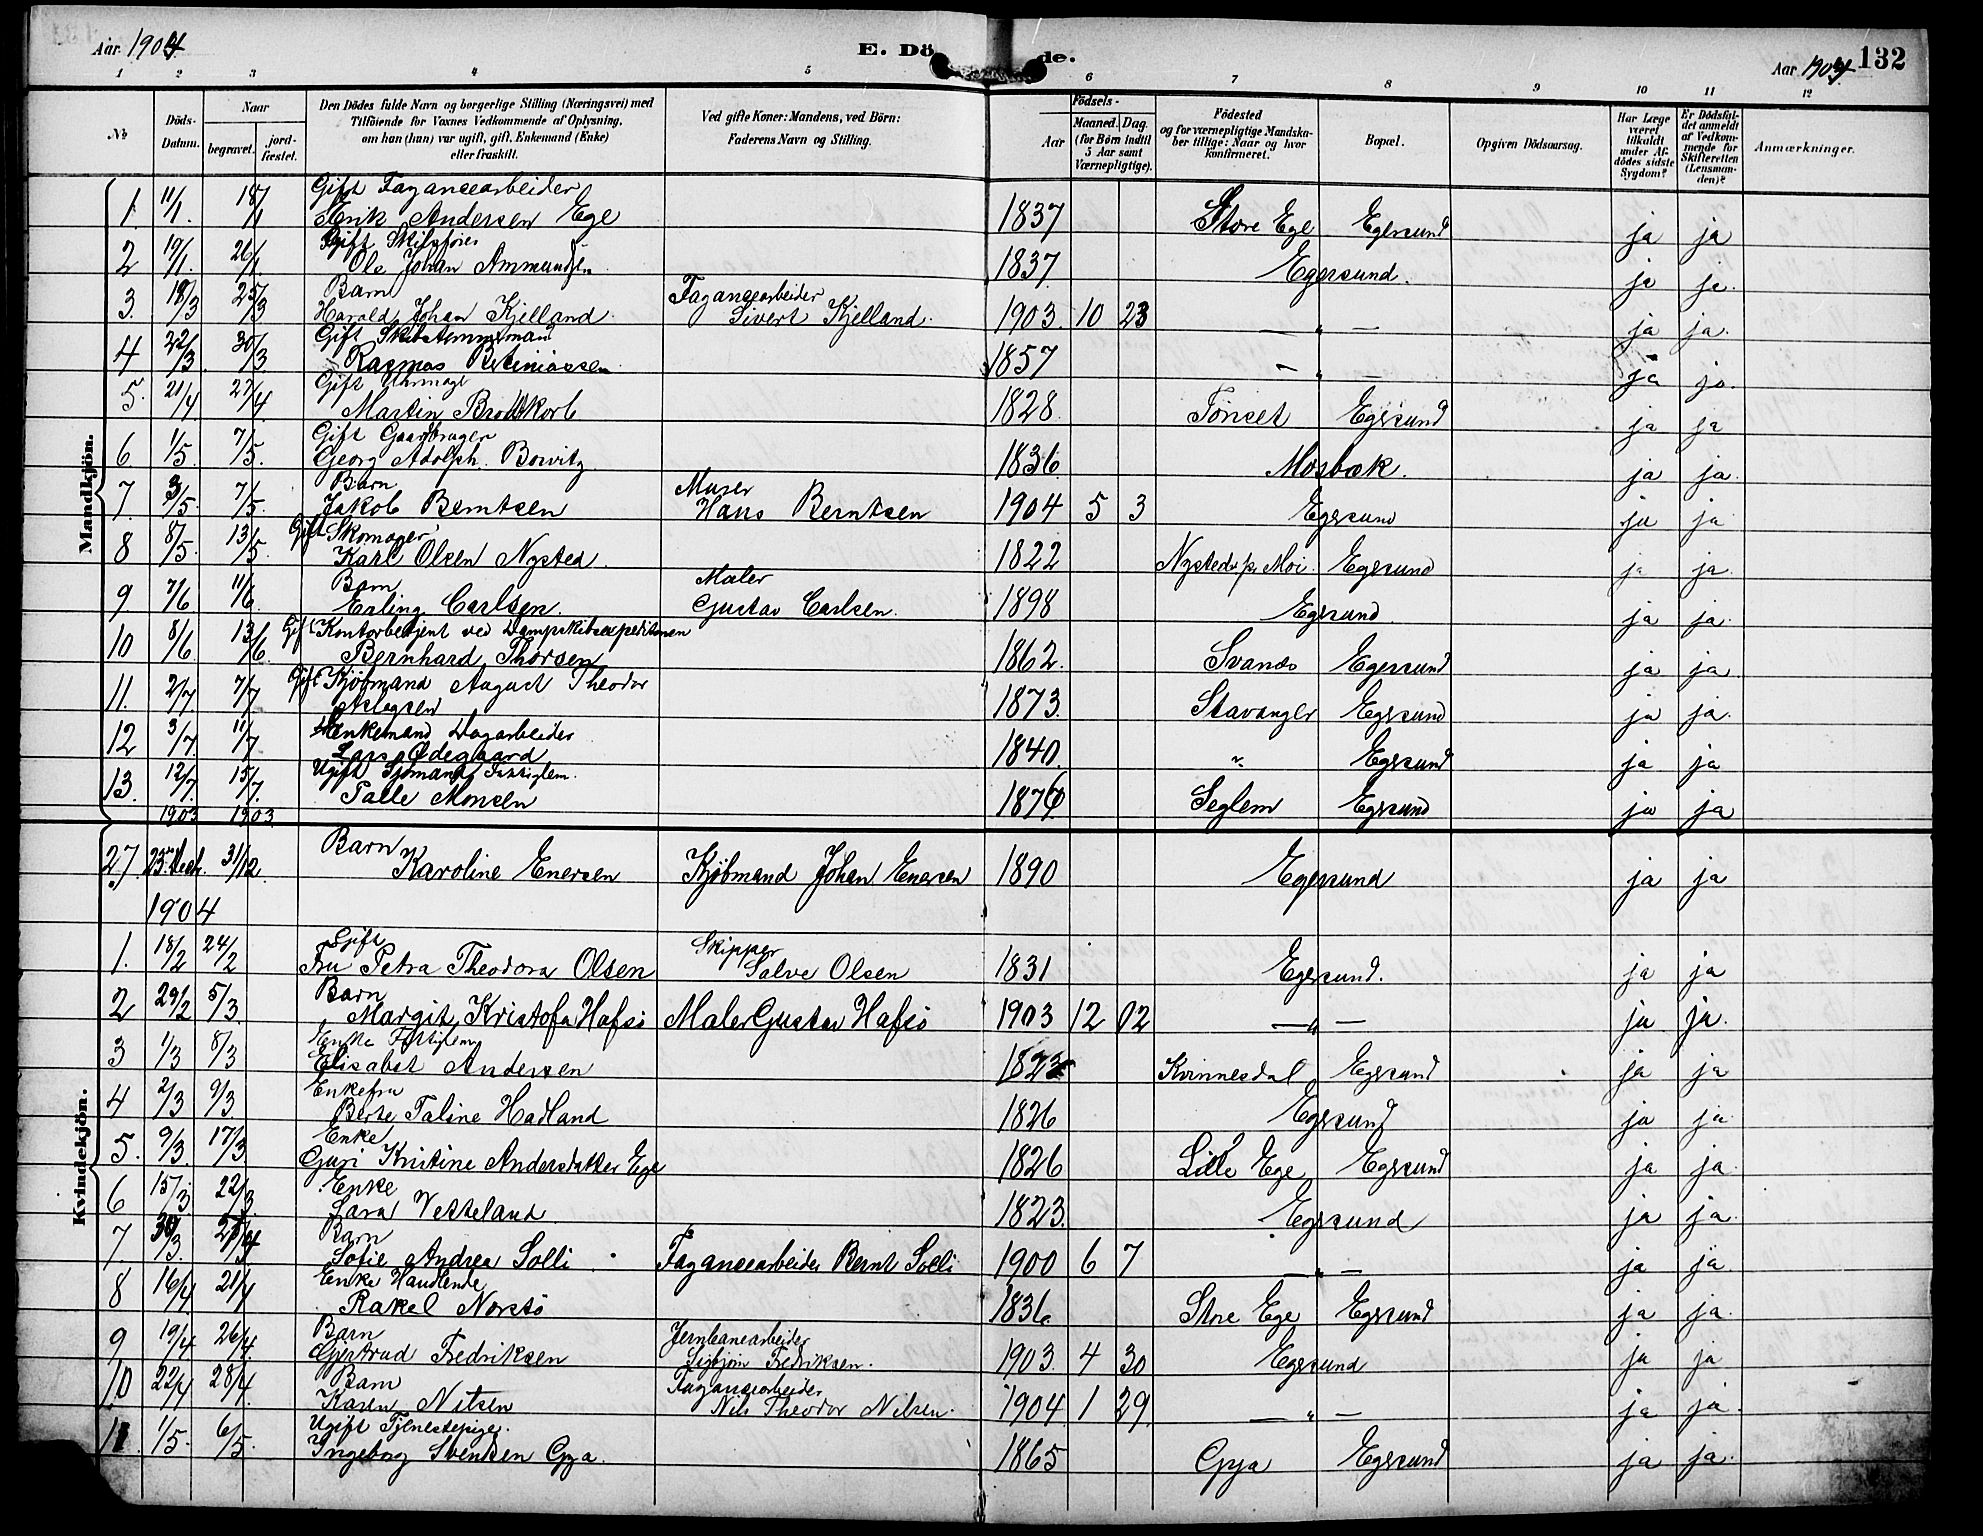 Aar 1904
E. Dö
de.
Aar 1904
132
1 2 3 4 5 6 7 8 9 10 11 12
№
Döds-Datum.
Naar
begravet.
jord-fæstet.
Den Dödes fulde Navn og borgerlige Stilling (Næringsvei) med
Tilföiende for Voxnes Vedkommende af Oplysning,
om han (hun) var ugift, gift, Enkemand (Enke)
eller fraskilt.
Ved gifte Koner: Mandens, ved Börn:
Faderens Navn og Stilling.
Födsels-
Aar
Maaned. Dag.
(for Börn indtil
5 Aar samt
Værnepligtige).
Födested
og for værnepligtige Mandska-
ber tillige: Naar og hvor
konfirmeret.
Bopæl.
Opgiven Dödsaarsag.
Har Læge
været
tilkaldt
under Af-
dödes sidste
Sygdom?
Er Dödsfal-
det anmeldt
af Vedkom-
mende for
Skifteretten
(Lensman-
den)?
Anmærkninger.
Mandkjön.
Gift Fayancearbeider
1. 11/1. 18/1 Erik Andersen Ege 1837 Store Ege Egersund ja ja
Gift Skibsfører
2 19/1. 26/1. Ole Johan Ammundsen 1837. Egersund. ja ja.
Barn Fayancearbeider
3. 18/3 25/3 Harald Johan Kjelland. Sivert Kjelland. 1903. 10 23 — " — ja ja.
Gift Skibstømmermand
4 22/3. 30/3. Rasmus 1857 — " — ja ja.
Gift
5. 21/4 27/4 Martin Brodtkorb 1828. Tönset Egersund ja ja
Gift Gaardbruger
6 1/5. 7/5. Georg Adolph. 1836. Mosbæk. ja ja.
Barn Murer
7. 3/5. 7/5. Jakob Berntsen Hans Berntsen 1904 5 3 Egersund ja ja
Gift Skomager
8 8/5. 13/5. Karl Olsen Nysted. 1822 Nysted p. Moi. Egersund ja ja.
Barn Maler
9. 7/6 11/6. Erling Carlsen. Gustav Carlsen. 1898 Egersund. ja ja.
Gift Kontorbetjent ved Dampskibsexpeditionen
10 8/6. 13/6. Bernhard Thorsen 1862. Svanes Egersund ja ja
Gift Kjöbmand August Theodor
11. 2/7 7/7 Aslagsen 1873. Stavanger Egersund ja ja.
Enkemand Dagarbeider
12 3/7. 11/7 Lars Ødegaard 1840. " Egersund ja ja
Ugift Sjömand Fattiglem.
13. 12/7. 15/7. Palle Monsen 1876 Seglem Egersund ja ja
1903 1903
Kvindekjön.
Barn
27. 25de Decb. 31/12. Karoline Enersen Kjöbmand Johan Enersen 1890 Egersund ja ja
1904
Gift Skipper
1. 18/2 24/2 Fru Petra Theodora Olsen Salve Olsen 1831 Egersund. ja ja
Barn
2 29/2 5/3. Margit Kristofa Hafsö Maler Gustav Hafsö 1903 12 12 — " — ja ja.
Enke Fattiglem
3 1/3 8/3 Elisabet Andersen Kvinnesdal Egersund ja ja
Enkefru
4 2/3 9/3. Berte Taline Hadland 1826 Egersund ja ja.
Enke
5. 9/3. 17/3 Guri Kristine Andersdatter Ege 1826 Lille Ege Egersund ja ja.
Enke
6 15/3 22/3. Sara Vetteland 1823. Egersund ja ja.
Barn
7 Sofie Andrea Solli Fayancearbeider Bernt Solli 1900 6 7 — " — ja ja.
Enke Handlende
8 16/4 21/4 Rakel Norstö 1836. Store Ege Egersund ja ja.
Barn Jernbanearbeider
9 19/4 26/4. Gjertrud Fredriksen Sigbjørn Fredriksen. 1903. 4 30 Egersund ja ja
Barn Fayancearbeider
10 22/4 28/4. Karen Nilsen Nils Theodor Nilsen. 1904 1 29. — " — ja ja.
Ugift Tjenestepige.
11. 1/5. 6/5. Ingeborg Svendsen Gya. 1865 Gya Egersund ja ja.